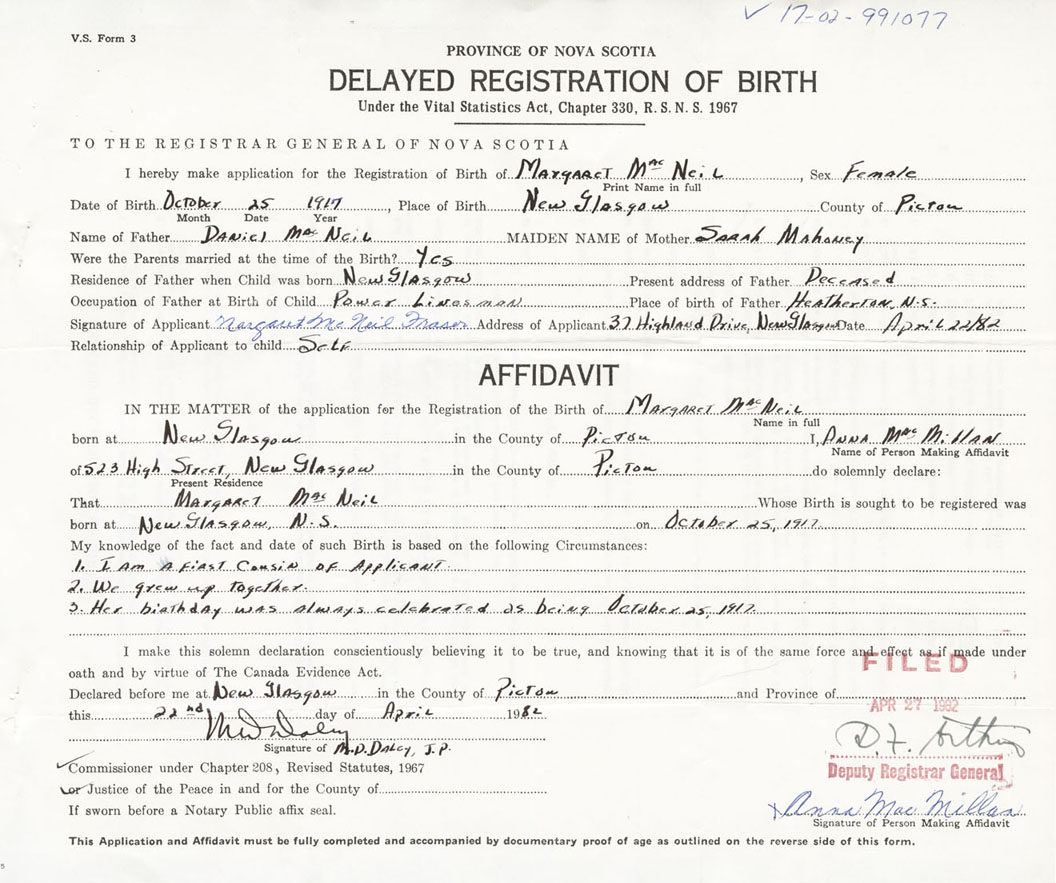 ✓ 17-02-991077
V.S. Form 3
PROVINCE OF NOVA SCOTIA
DELAYED REGISTRATION OF BIRTH
Under the Vital Statistics Act, Chapter 330, R.S.N.S. 1967
TO THE REGISTRAR GENERAL OF NOVA SCOTIA
I hereby make application for the Registration of Birth of Margaret Mac Neil, Sex Female
Print Name in full
Date of Birth October 25 1917, Place of Birth New Glasgow County of Picton
Month Date Year
Name of Father Daniel Mac Neil MAIDEN NAME of Mother Sarah Mahoney
Were the Parents married at the time of the Birth? Yes
Residence of Father when Child was born New Glasgow Present address of Father Deceased
Occupation of Father at Birth of Child Power Linesman Place of birth of Father Heatherton, N.S.
Signature of Applicant Margaret Mc Neil Fraser Address of Applicant 37 Highland Drive, New Glasgow Date April 22/82
Relationship of Applicant to child Self
AFFIDAVIT
IN THE MATTER of the application for the Registration of the Birth of Margaret Mac Neil
Name in full
born at New Glasgow in the County of Picton I, Anna Mac Millan
Name of Person Making Affidavit
of 523 High Street, New Glasgow in the County of Picton do solemnly declare:
Present Residence
That Margaret Mac Neil Whose Birth is sought to be registered was
born at New Glasgow, N.S. on October 25, 1917
My knowledge of the fact and date of such Birth is based on the following Circumstances:
1. I Am A First Cousin of Applicant.
2. We grew up together.
3. Her birthday was always celebrated as being October 25, 1917.
I make this solemn declaration conscientiously believing it to be true, and knowing that it is of the same force and effect as if made under
oath and by virtue of The Canada Evidence Act.
FILED
Declared before me at New Glasgow in the County of Picton and Province of
APR 27 1982
this 22nd day of April 1982
M D Daley
D. F.
Signature of M.D. Daley, J.P.
Deputy Registrar General
✓Commissioner under Chapter 208, Revised Statutes, 1967
✓or Justice of the Peace in and for the County of
x Anna Mac Millan
If sworn before a Notary Public affix seal.
Signature of Person Making Affidavit
This Application and Affidavit must be fully completed and accompanied by documentary proof of age as outlined on the reverse side of this form.
5